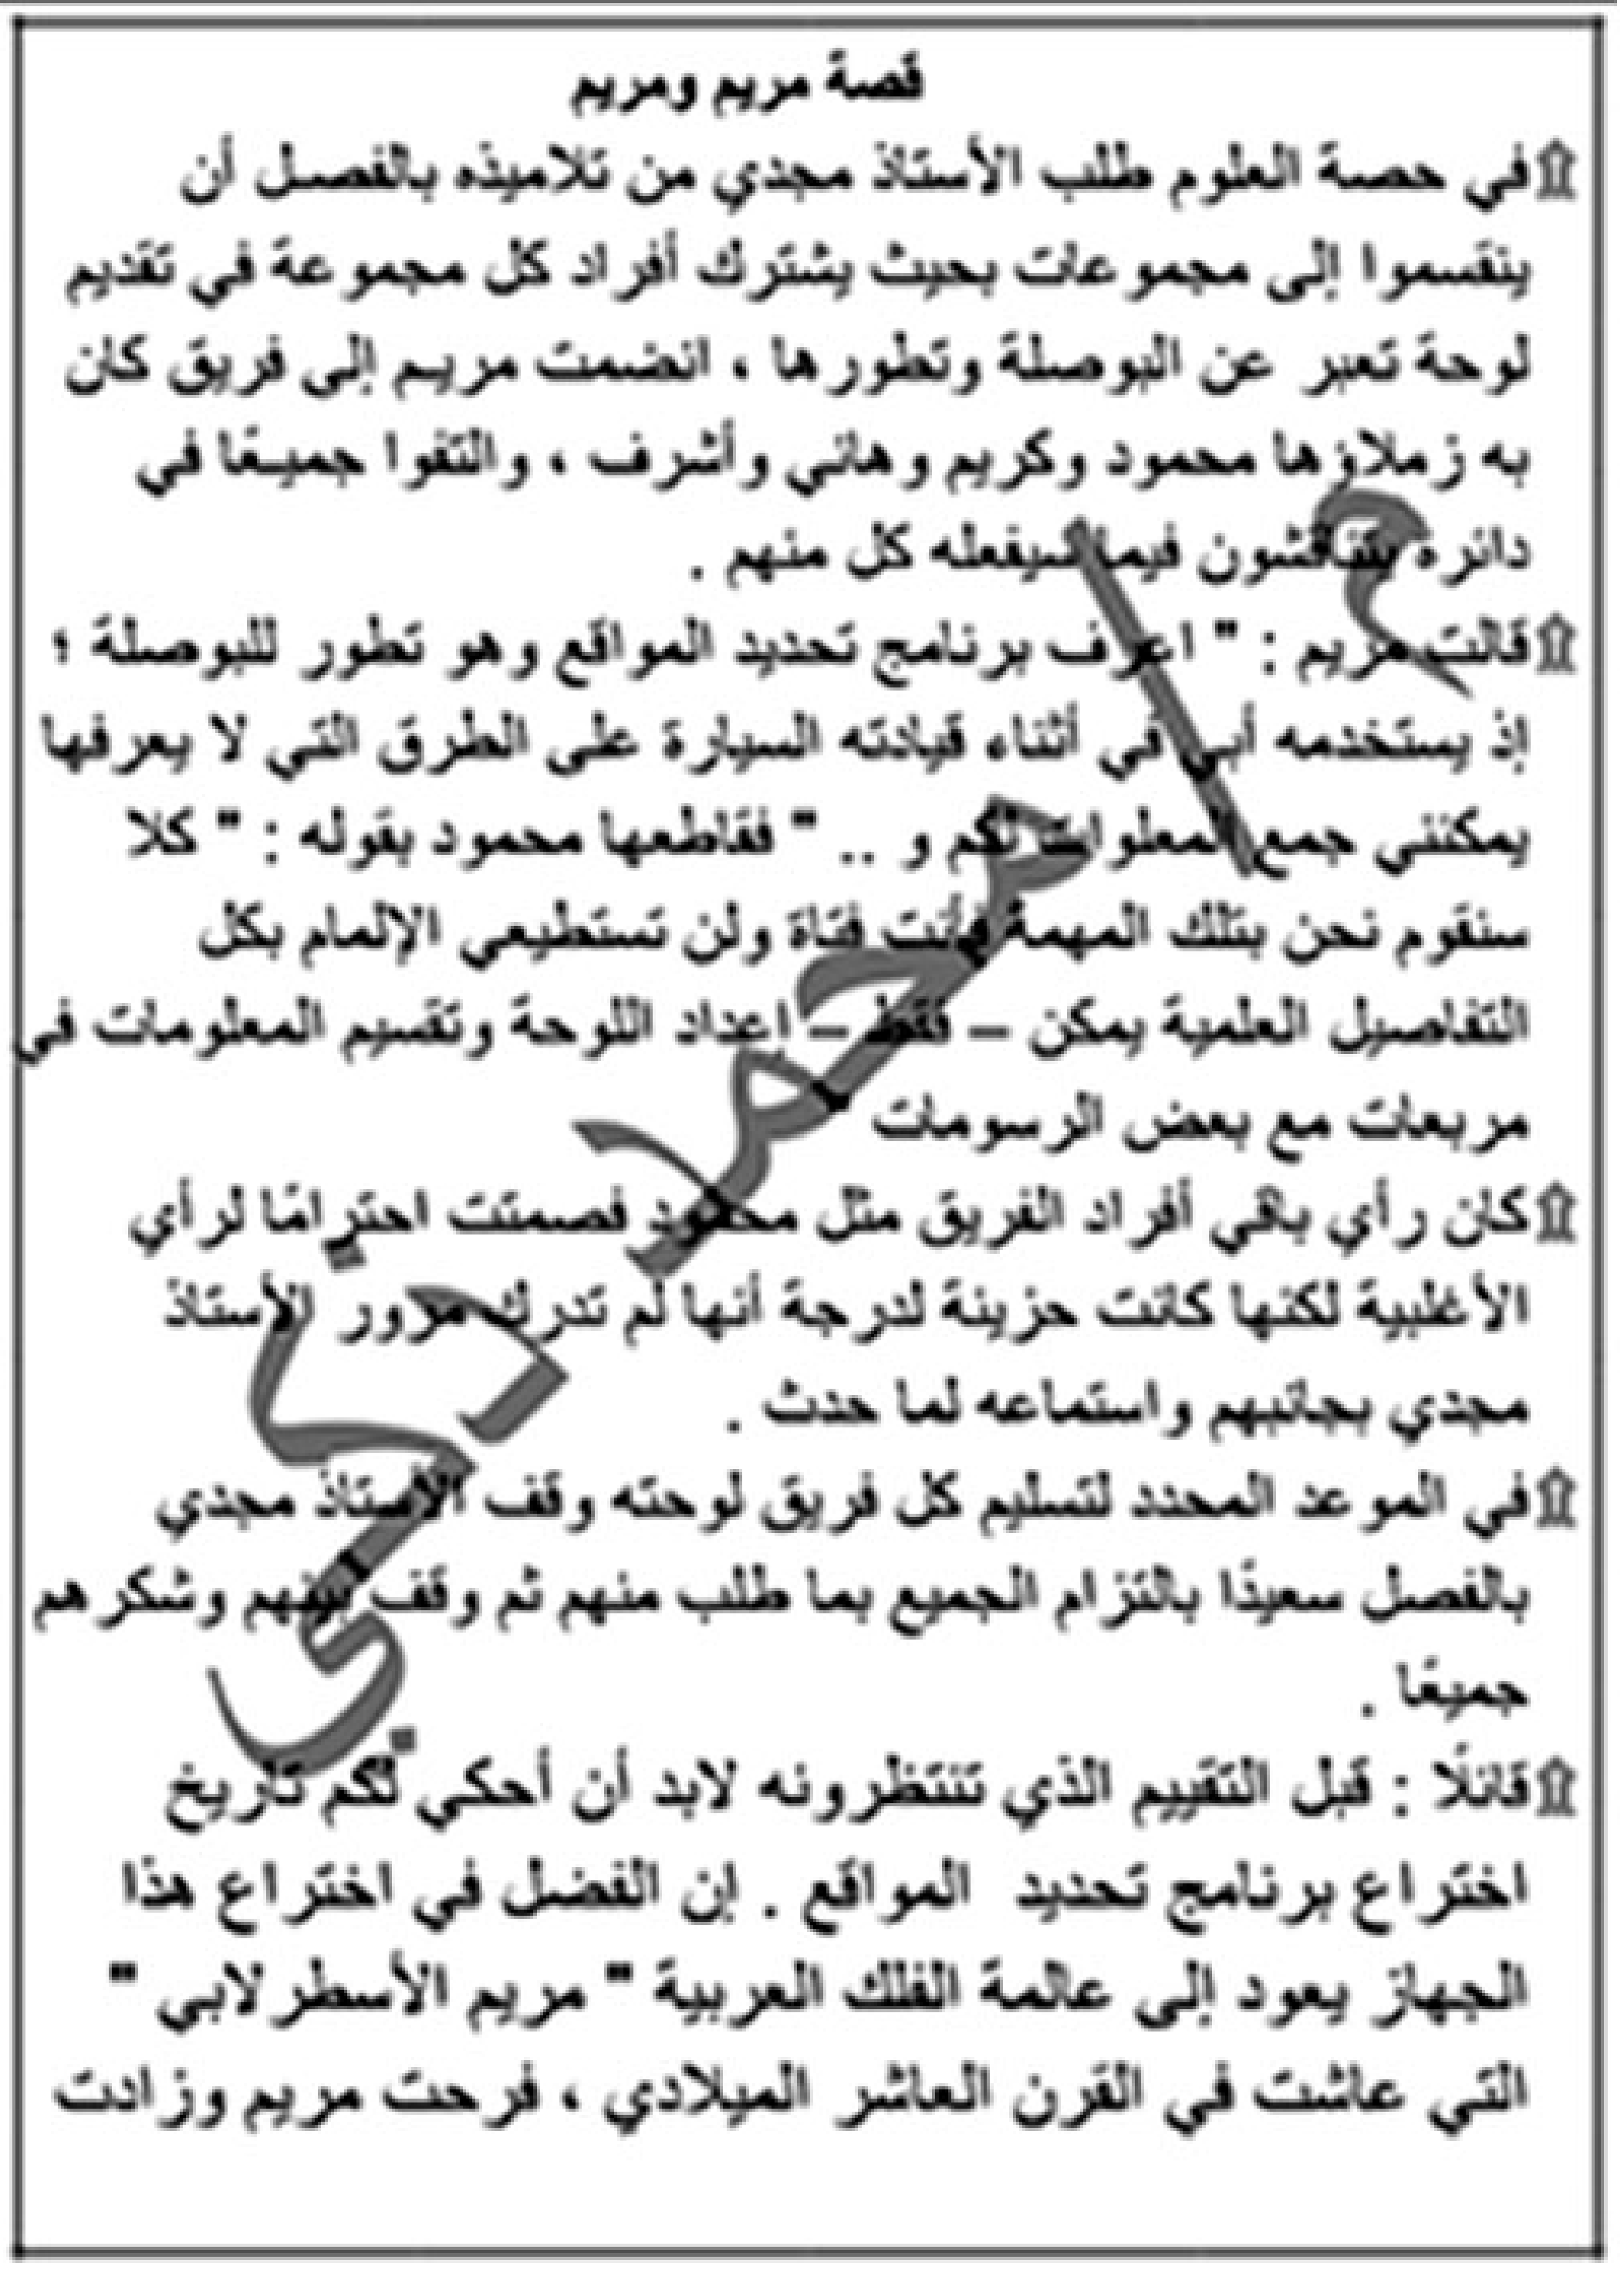 قصة مريم ومريم
۩في حصة العلوم طلب الأستاذ مجدي من تلاميذه بالفصل أن
ينقسموا إلى مجموعات بحيث يشترك أفراد كل مجموعة في تقديم
لوحة تعبر عن البوصلة وتطورها ، انضمت مريم إلى فريق كان
به زملاؤها محمود وكريم وهاني وأشرف ، والتفوا جميعًا في
دائرة يتناقشون فيما سيفعله كل منهم .
۩قالت مريم : " اعرف برنامج تحديد المواقع وهو تطور للبوصلة ؛
إذ يستخدمه أبي في أثناء قيادته السيارة على الطرق التي لا يعرفها
يمكنني جمع المعلومات لكم و .. " فقاطعها محمود بقوله : " كلا
سنقوم نحن بتلك المهمة فأنت فتاة ولن تستطيعي الإلمام بكل
التفاصيل العلمية يمكن – فقط – إعداد اللوحة وتقسيم المعلومات في
مربعات مع بعض الرسومات
۩كان رأي باقي أفراد الفريق مثل محمود فصمتت احترامًا لرأي
الأغلبية لكنها كانت حزينة لدرجة أنها لم تدرك مرور الأستاذ
مجدي بجانبهم واستماعه لما حدث .
۩في الموعد المحدد لتسليم كل فريق لوحته وقف الأستاذ مجدي
بالفصل سعيدًا بالتزام الجميع بما طلب منهم ثم وقف بينهم وشكرهم
جميعًا .
۩قائلًا : قبل التقييم الذي تنتظرونه لابد أن أحكي لكم تاريخ
اختراع برنامج تحديد المواقع . إن الفضل في اختراع هذا
الجهاز يعود إلى عالمة الفلك العربية " مريم الأسطرلابي "
التي عاشت في القرن العاشر الميلادي ، فرحت مريم وزادت